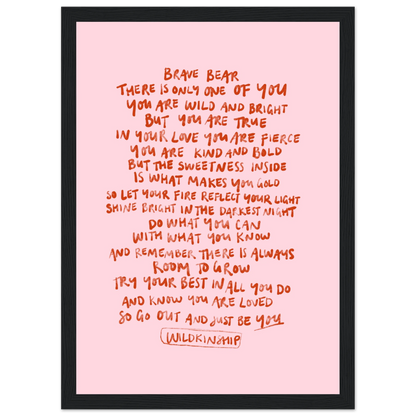 BRAVE BEAR
THERE IS ONLY ONE OF YOU
YOU ARE WILD AND BRIGHT
BUT YOU ARE TRUE
IN YOUR LOVE YOU ARE FIERCE
YOU ARE KIND AND BOLD
BUT THE SWEETNESS INSIDE
IS WHAT MAKES YOU GOLD
SO LET YOUR FIRE REFLECT YOUR LIGHT
SHINE BRIGHT IN THE DARKEST NIGHT
DO WHAT YOU CAN
WITH WHAT YOU KNOW
AND REMEMBER THERE IS ALWAYS
ROOM TO GROW
TRY YOUR BEST IN ALL YOU DO
AND KNOW YOU ARE LOVED
SO GO OUT AND JUST BE YOU
WILDKINSHIP